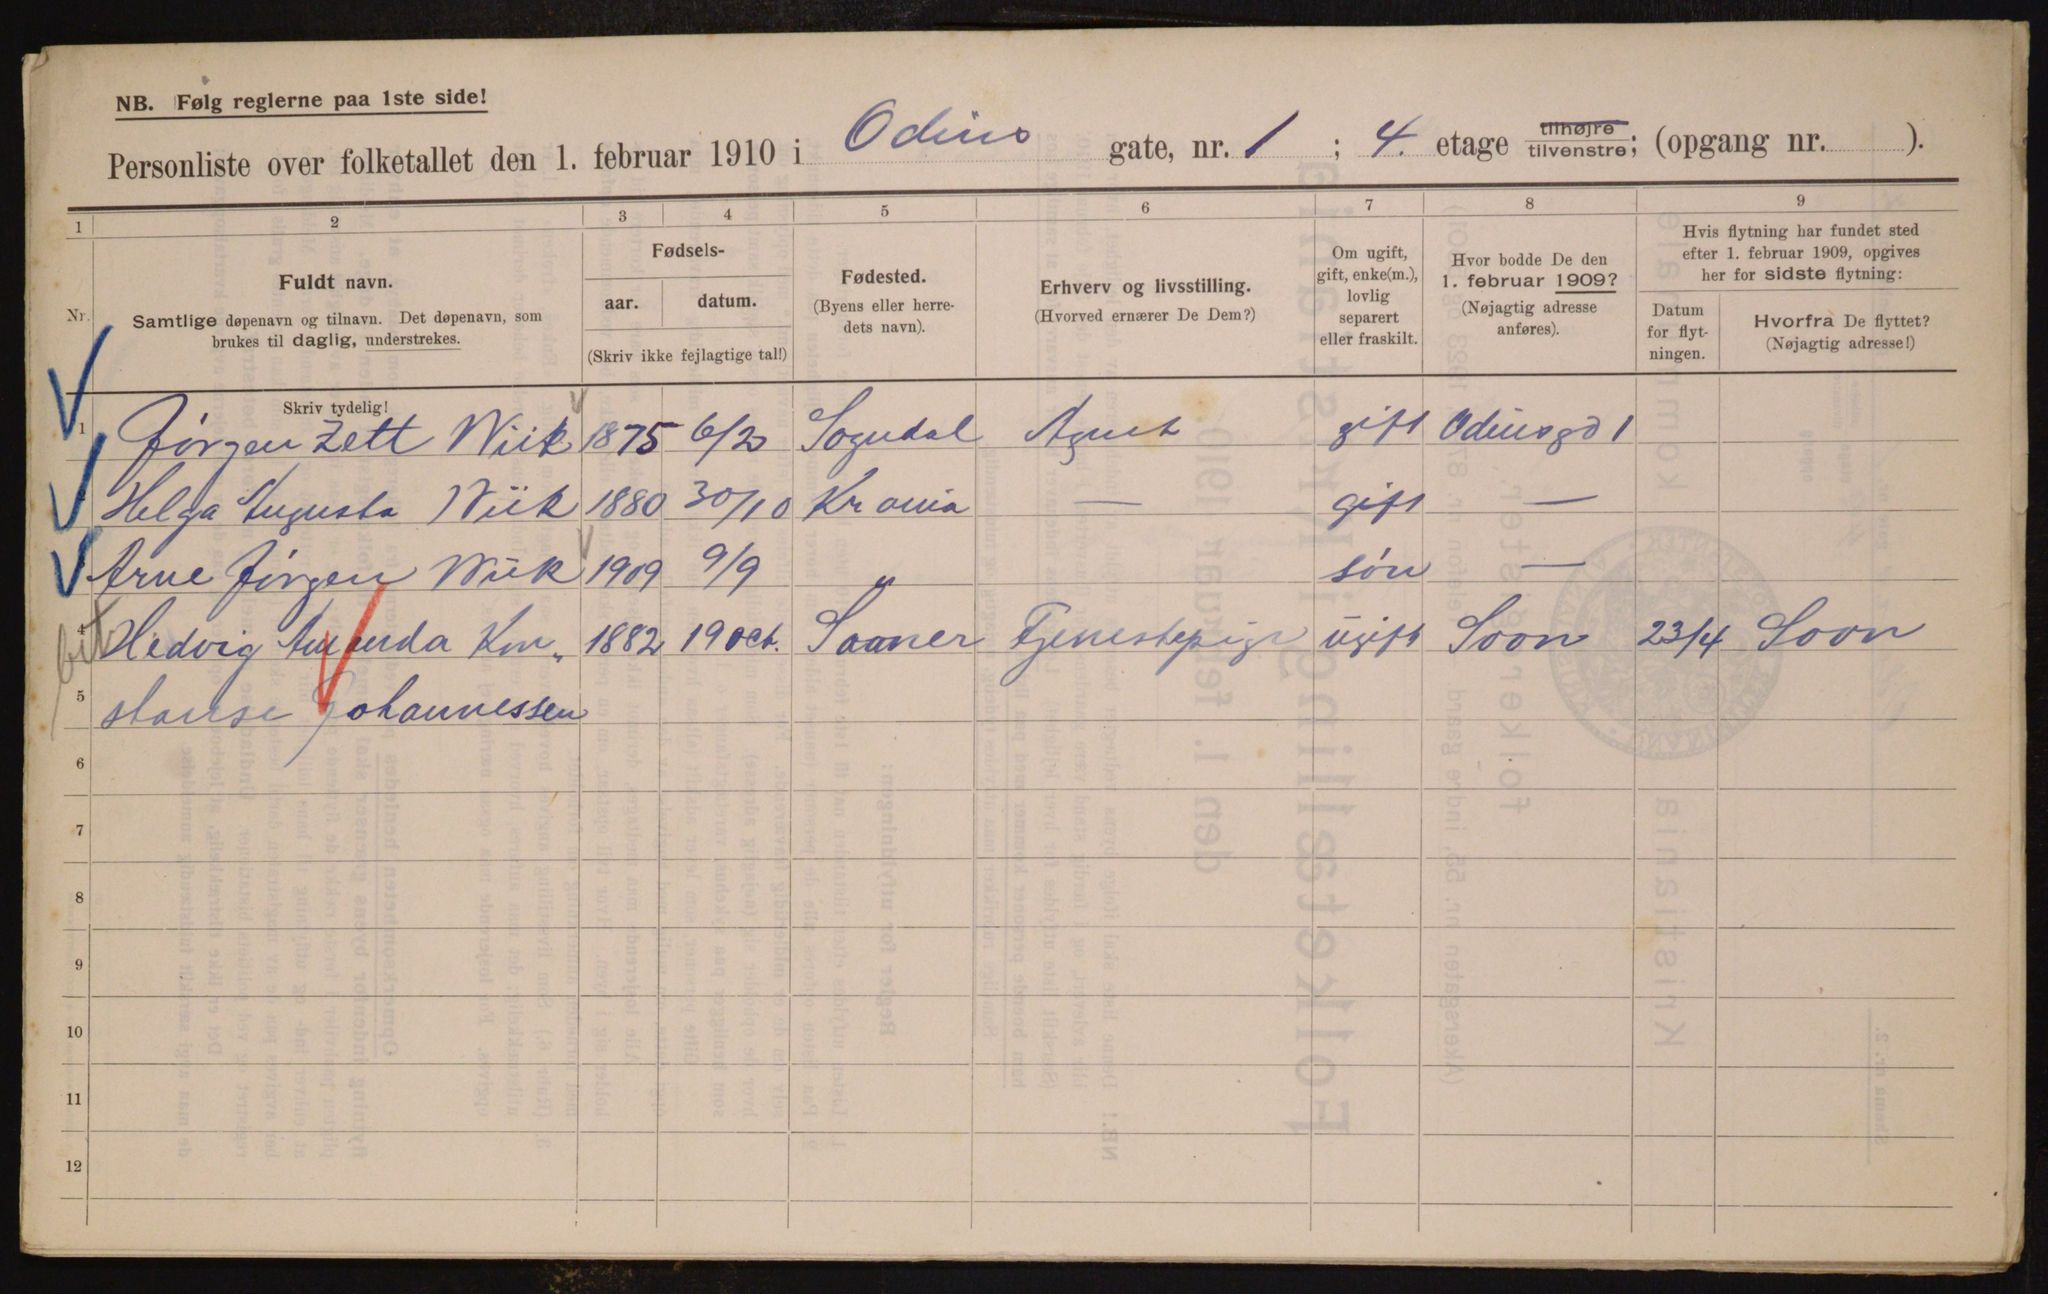 NB. Følg reglerne paa 1ste side!
Personliste over folketallet den 1. februar 1910 i Odins gate, nr. 1 ; 4. etage tilhøjre tilvenstre; (opgang nr. ).
1 2 3 4 5 6 7 8 9
Nr.
Fuldt navn.
Samtlige døpenavn og tilnavn. Det døpenavn, som
brukes til daglig, understrekes.
Skriv tydelig!
Fødsels-
aar. datum.
(Skriv ikke fejlagtige tal!)
Fødested.
(Byens eller herre-
dets navn).
Erhverv og livsstilling.
(Hvorved ernærer De Dem?)
Om ugift,
gift, enke(m.),
lovlig
separert
eller fraskilt.
Hvor bodde De den
1. februar 1909?
(Nøjagtig adresse
anføres).
Hvis flytning har fundet sted
efter 1. februar 1909, opgives
her for sidste flytning:
Datum
for flyt-
ningen.
Hvorfra De flyttet?
(Nøjagtig adresse!)
1 Jørgen Zett Wiik 1875 6/2 Sogndal Agent gift Odinsgd 1
Helga Augusta Wiik 1880 30/10 Krania — gift —
Arne Jørgen Wiik 1909 9/9 „ søn —
4 Hedvig Amanda Kon„ 1882 19 oct. Saaner Tjenestepige ugift Soon 23/4 Soon
5 stanse Johannessen
6
7
8
9
10
11
12